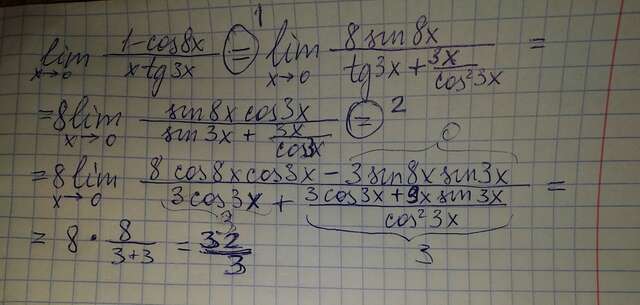 lim x→0 (1-cos8x)/(x tg3x) =¹ lim x→0 (8 sin8x)/(tg3x + 3x/(cos²3x)) =
= 8 lim x→0 (sin8x cos3x)/(sin3x + 3x/(cos3x)) =²
= 8 lim x→0 (8 cos8x cos3x - 3 sin8x sin3x)/(3 cos3x + (3 cos3x + 9x sin3x)/(cos²3x)) =
0
3
3
= 8 · 8/(3+3) = 32/3